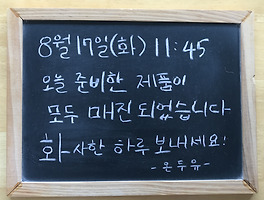 8월 17일(화) 11:45
오늘 준비한 제품이
모두 매진 되었습니다
화사한 하루 보내세요!
-온두유-